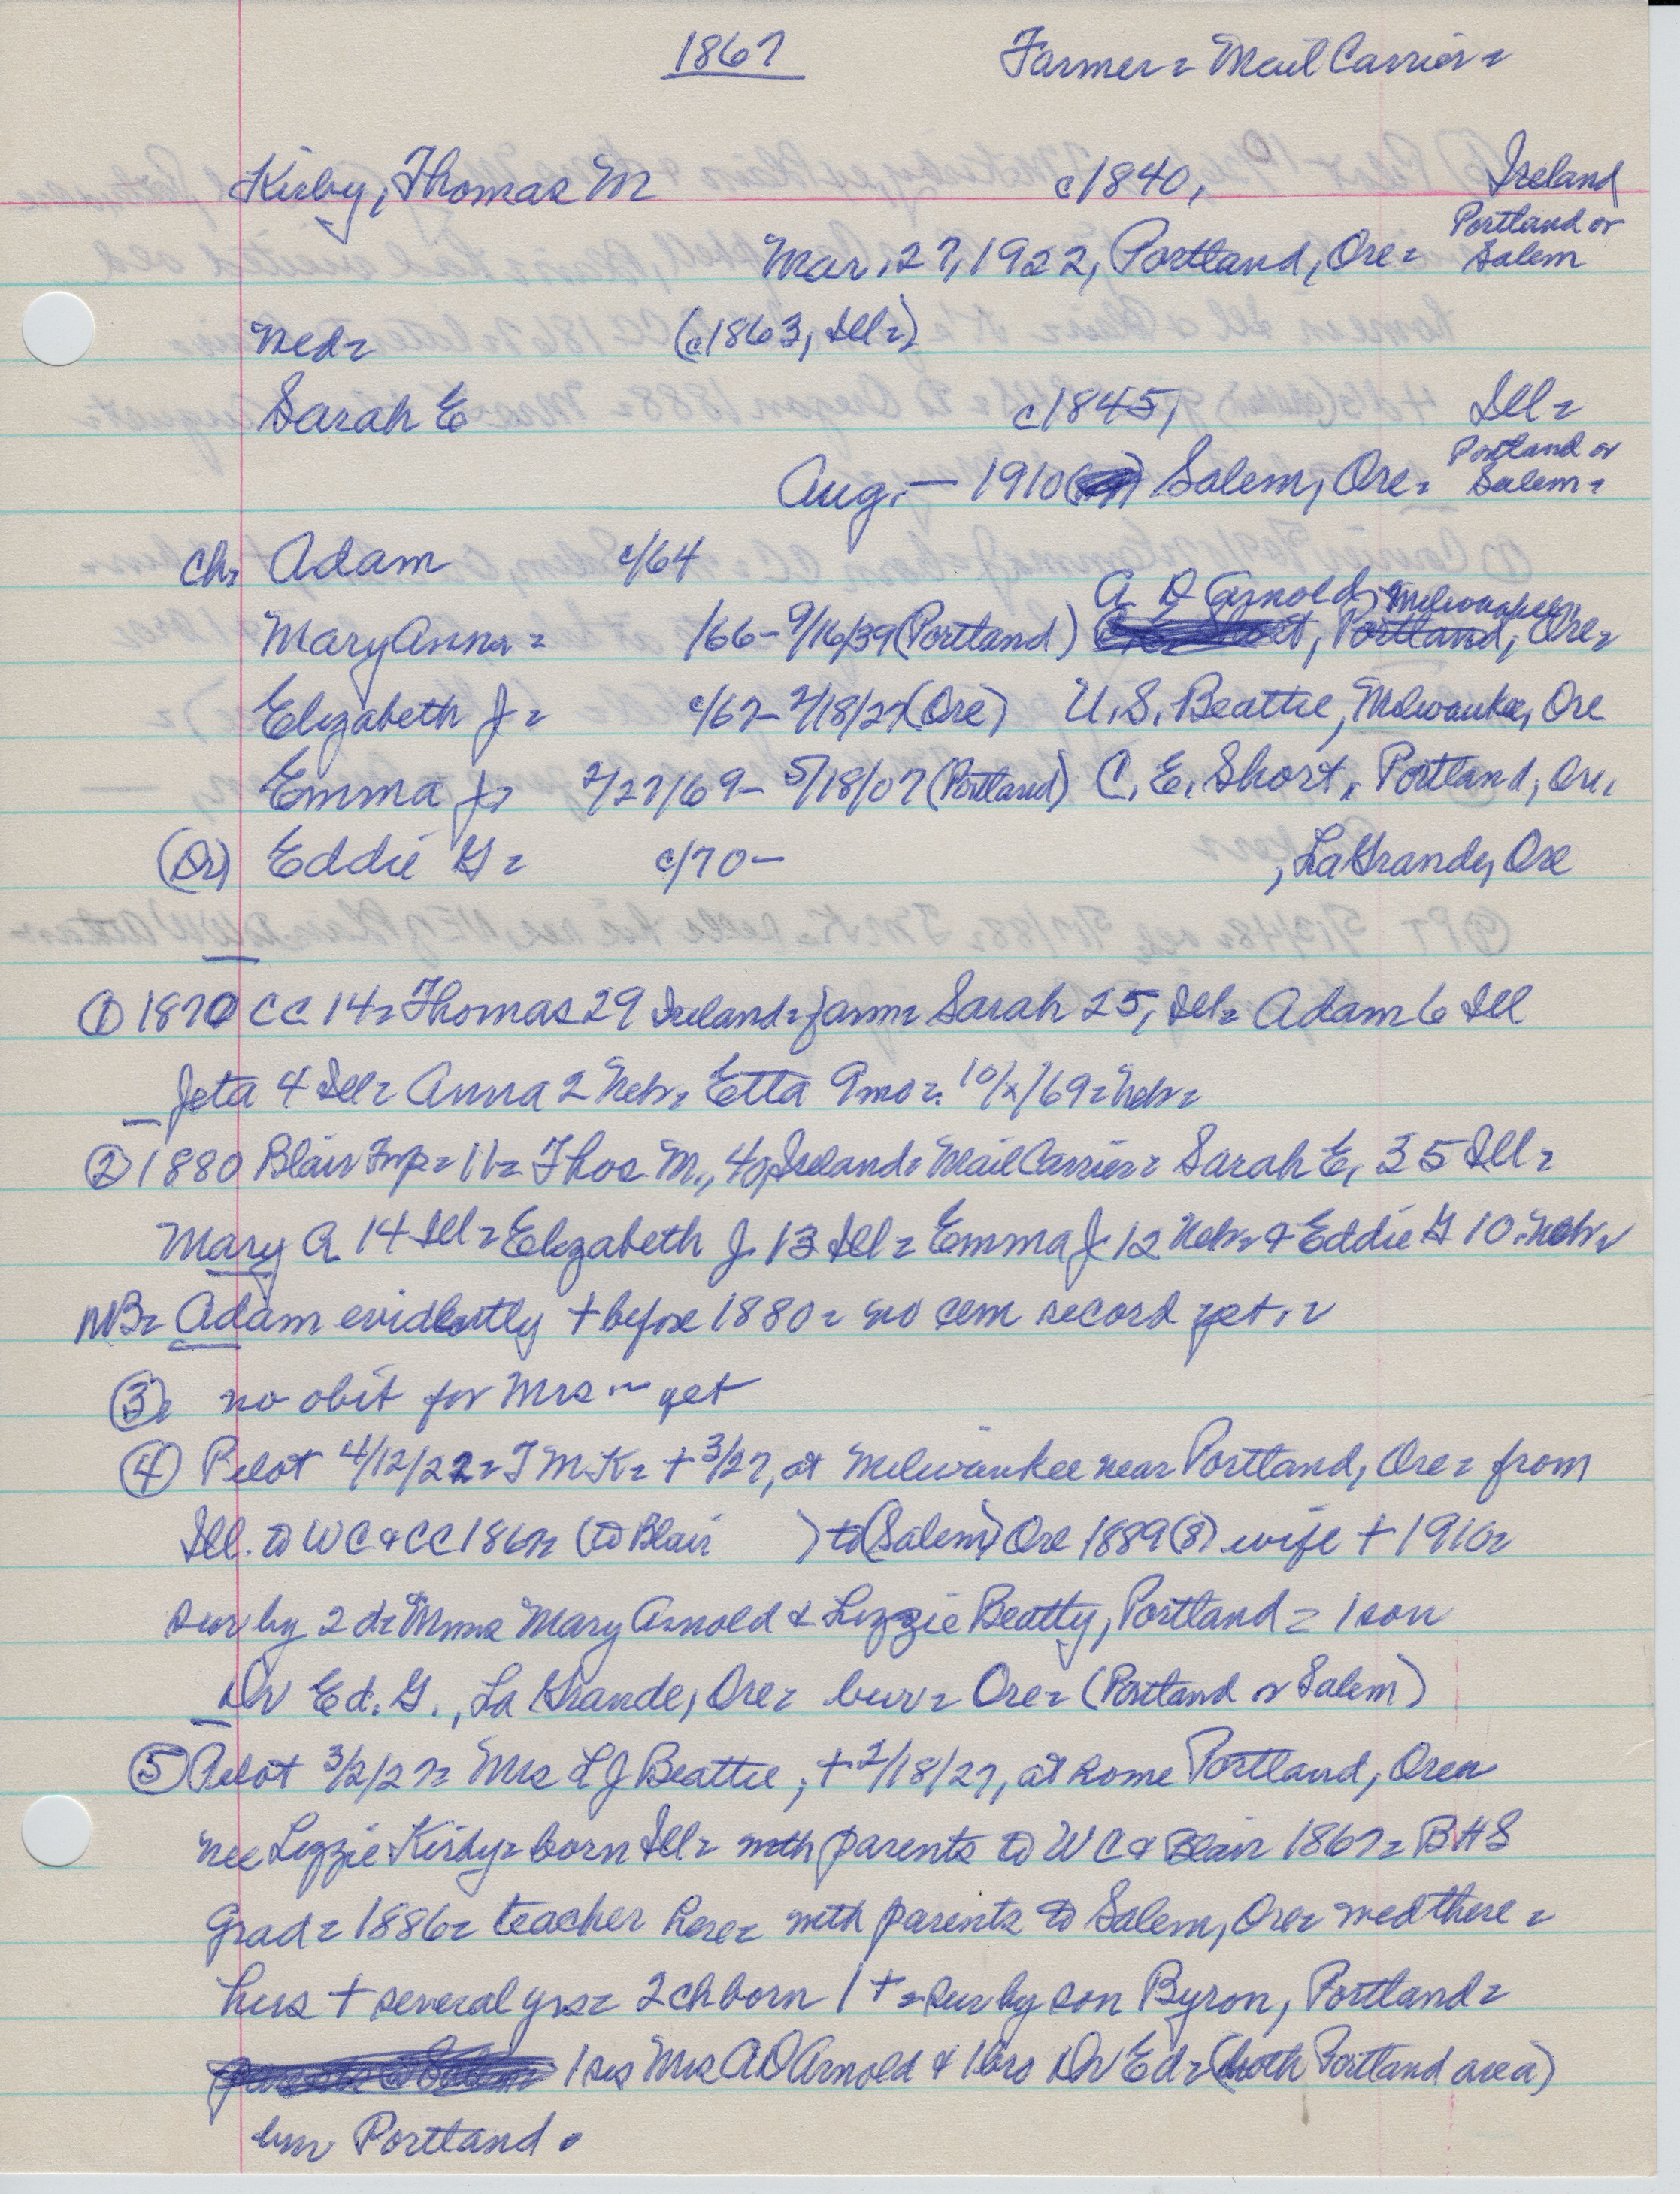 1867 Farmer = Mail Carrier =
Kirby, Thomas M c1840, Ireland
Mar. 27, 1922, Portland, Ore = Portland or Salem
med = (c1863, Ill =)
Sarah E c1845, Ill =
Aug. — 1910 Salem, Ore = Portland or Salem =
Ch = Adam c/64
A D Arnold, Milwaukee
Mary Anna = /66 - 9/16/39 (Portland) C. E. Short, Portland, Ore =
Elizabeth J = c/67 - 2/18/27 (Ore) U. S. Beattie, Milwaukee, Ore
Emma J = 2/27/69 - 5/18/07 (Portland) C. E. Short, Portland, Ore.
(Dr) Eddie G = c/70 - , La Grande, Ore
① 1870 CC 14 = Thomas 29 Ireland = farm = Sarah 25, Ill = Adam 6 Ill
Jeta 4 Ill = Anna 2 Nebr = Etta 9 mo = 10/x/69 = Nebr =
② 1880 Blair Twp = 11 = Thos M., 40, Ireland = Mail Carrier = Sarah E, 35 Ill =
Mary A 14 Ill = Elizabeth J. 13 Ill = Emma J. 12 Nebr = & Eddie G 10 = Nebr =
NB = Adam evidently + before 1880 = no cem record yet. =
③ = no obit for Mrs ~ yet
④ Pilot 4/12/22 = T M K = + 3/27, at Milwaukee near Portland, Ore = from
Ill. to W C & CC 1867 = (to Blair ) to (Salem) Ore 1889 (8) wife + 1910 =
sur by 2 d = Mmes Mary Arnold & Lizzie Beatty, Portland = 1 son
Dr Ed. G., La Grande, Ore = bur = Ore = (Portland or Salem)
⑤ Pilot 3/2/27 = Mrs L J Beattie, + 2/18/27, at home Portland, Ore =
nee Lizzie Kirby = born Ill = with parents to W C & Blair 1867 = B H S
Grad = 1886 = teacher here = with parents to Salem, Ore = med there =
hus + several yrs = 2 ch born 1 + = sur by son Byron, Portland =
1 sis Mrs A D Arnold & 1 bro Dr Ed = (both Portland area)
bur Portland .